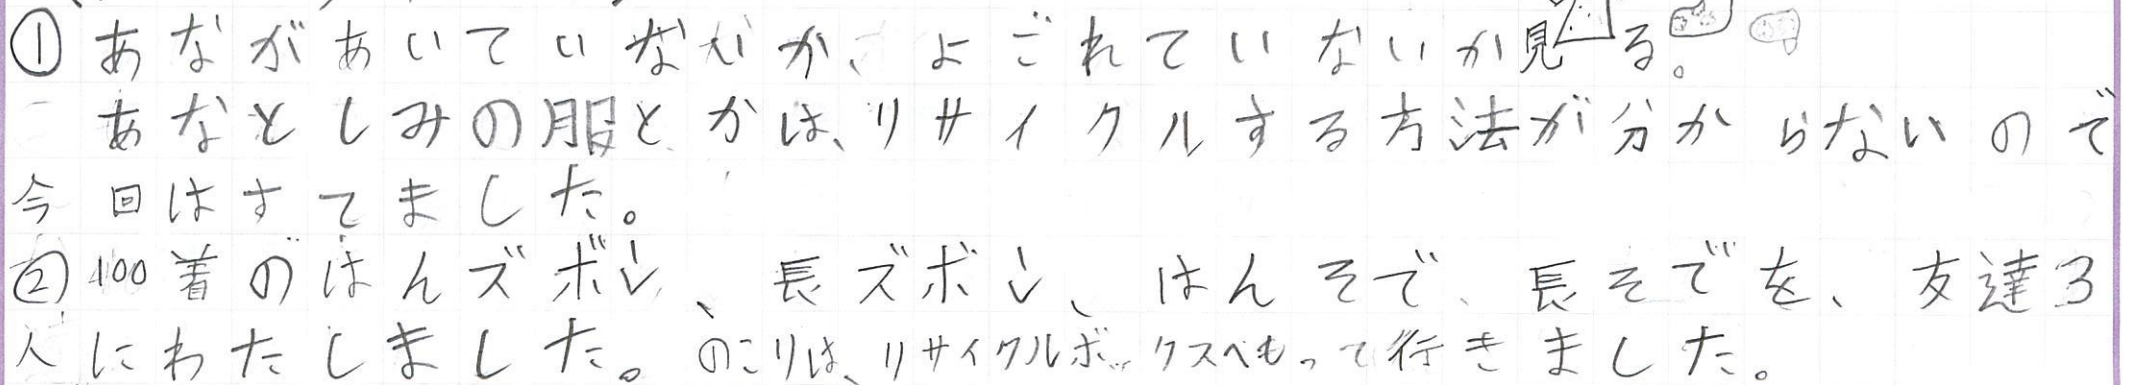 ①あながあいていないか、よごれていないか見る。
あなとしみの服とかは、リサイクルする方法が分からないので
今回はすてました。
②100着のはんズボン、長ズボン、はんそで、長そでを、友達3
人にわたしました。のこりは、リサイクルボックスへもって行きました。